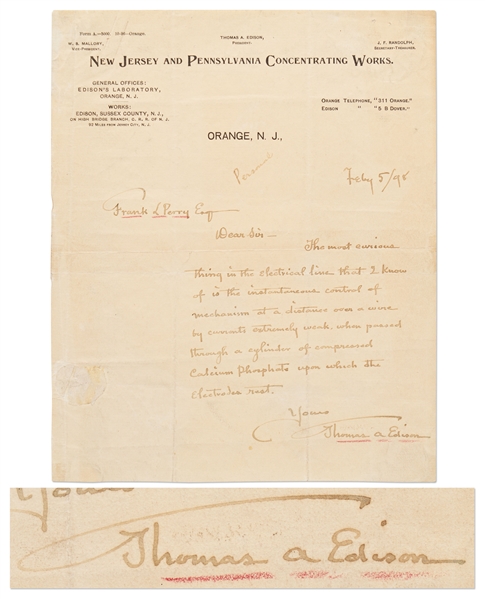 Form 1.-5000. 10-20-Orange.
THOMAS A. EDISON,
PRESIDENT.
W. S. MALLORY,
VICE-PRESIDENT.
J. F. RANDOLPH,
SECRETARY-TREASURER.
NEW JERSEY AND PENNSYLVANIA CONCENTRATING WORKS.
GENERAL OFFICES:
EDISON'S LABORATORY,
ORANGE, N. J.
WORKS:
EDISON, SUSSEX COUNTY, N. J.,
ON HIGH BRIDGE, BRANCH, C. R. R. OF N. J.
52 MILES FROM JERSEY CITY, N. J.
ORANGE TELEPHONE, "311 ORANGE."
EDISON " "5 B DOVER."
ORANGE, N. J.,
Personal
Feby 5/98
Frank L Perry Esq
Dear Sir—
The most curious
thing in the electrical line that I know
of is the instantaneous control of
mechanism at a distance over a wire
by currents extremely weak when passed
through a cylinder of compressed
Calcium Phosphate upon which the
Electrodes rest.
Yours
Thomas a Edison
Yours
Thomas a Edison